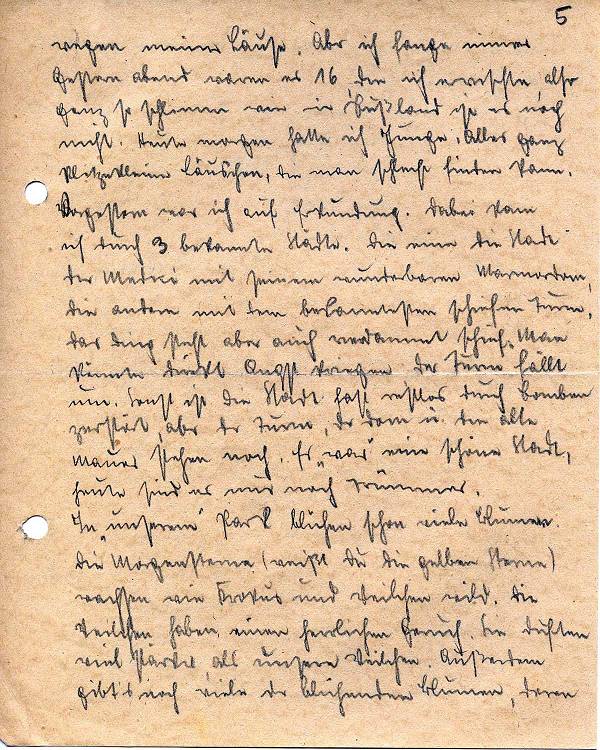 5
wegen meiner Läuse. Aber ich fange immer
Gestern abend waren es 16, die ich erwischte, also
ganz so schlimm wie in Rußland ist es noch
nicht. Heute morgen hatte ich Junge. Alles ganz
klitzekleine Läuschen, die man schlecht finden kann.
Vorgestern war ich auf Erkundung. Dabei kam
ich durch 3 bekannte Städte. Die eine die Stadt
der Medici mit seinem wunderbaren Marmordom,
die andere mit dem bekanntesten schiefen Turm,
das Ding steht aber auch verdammt schief. Man
könnte direkt Angst kriegen der Turm fällt
um. Sonst ist die Stadt fast restlos durch Bomben
zerstört, aber der Turm, der Dom u. die alte
Mauer stehen noch. Es „war“ eine schöne Stadt,
heute sind es nur noch Trümmer.
In „unserem“ Park blühen schon viele Blumen.
Die Morgensterne (weißt Du die gelben Sterne)
wachsen wie Krokus und Veilchen wild. Die
Veilchen haben einen herrlichen Geruch. Sie duften
viel stärker als unsere Veilchen. Außerdem
gibt's noch viele der blühenden Blumen, deren